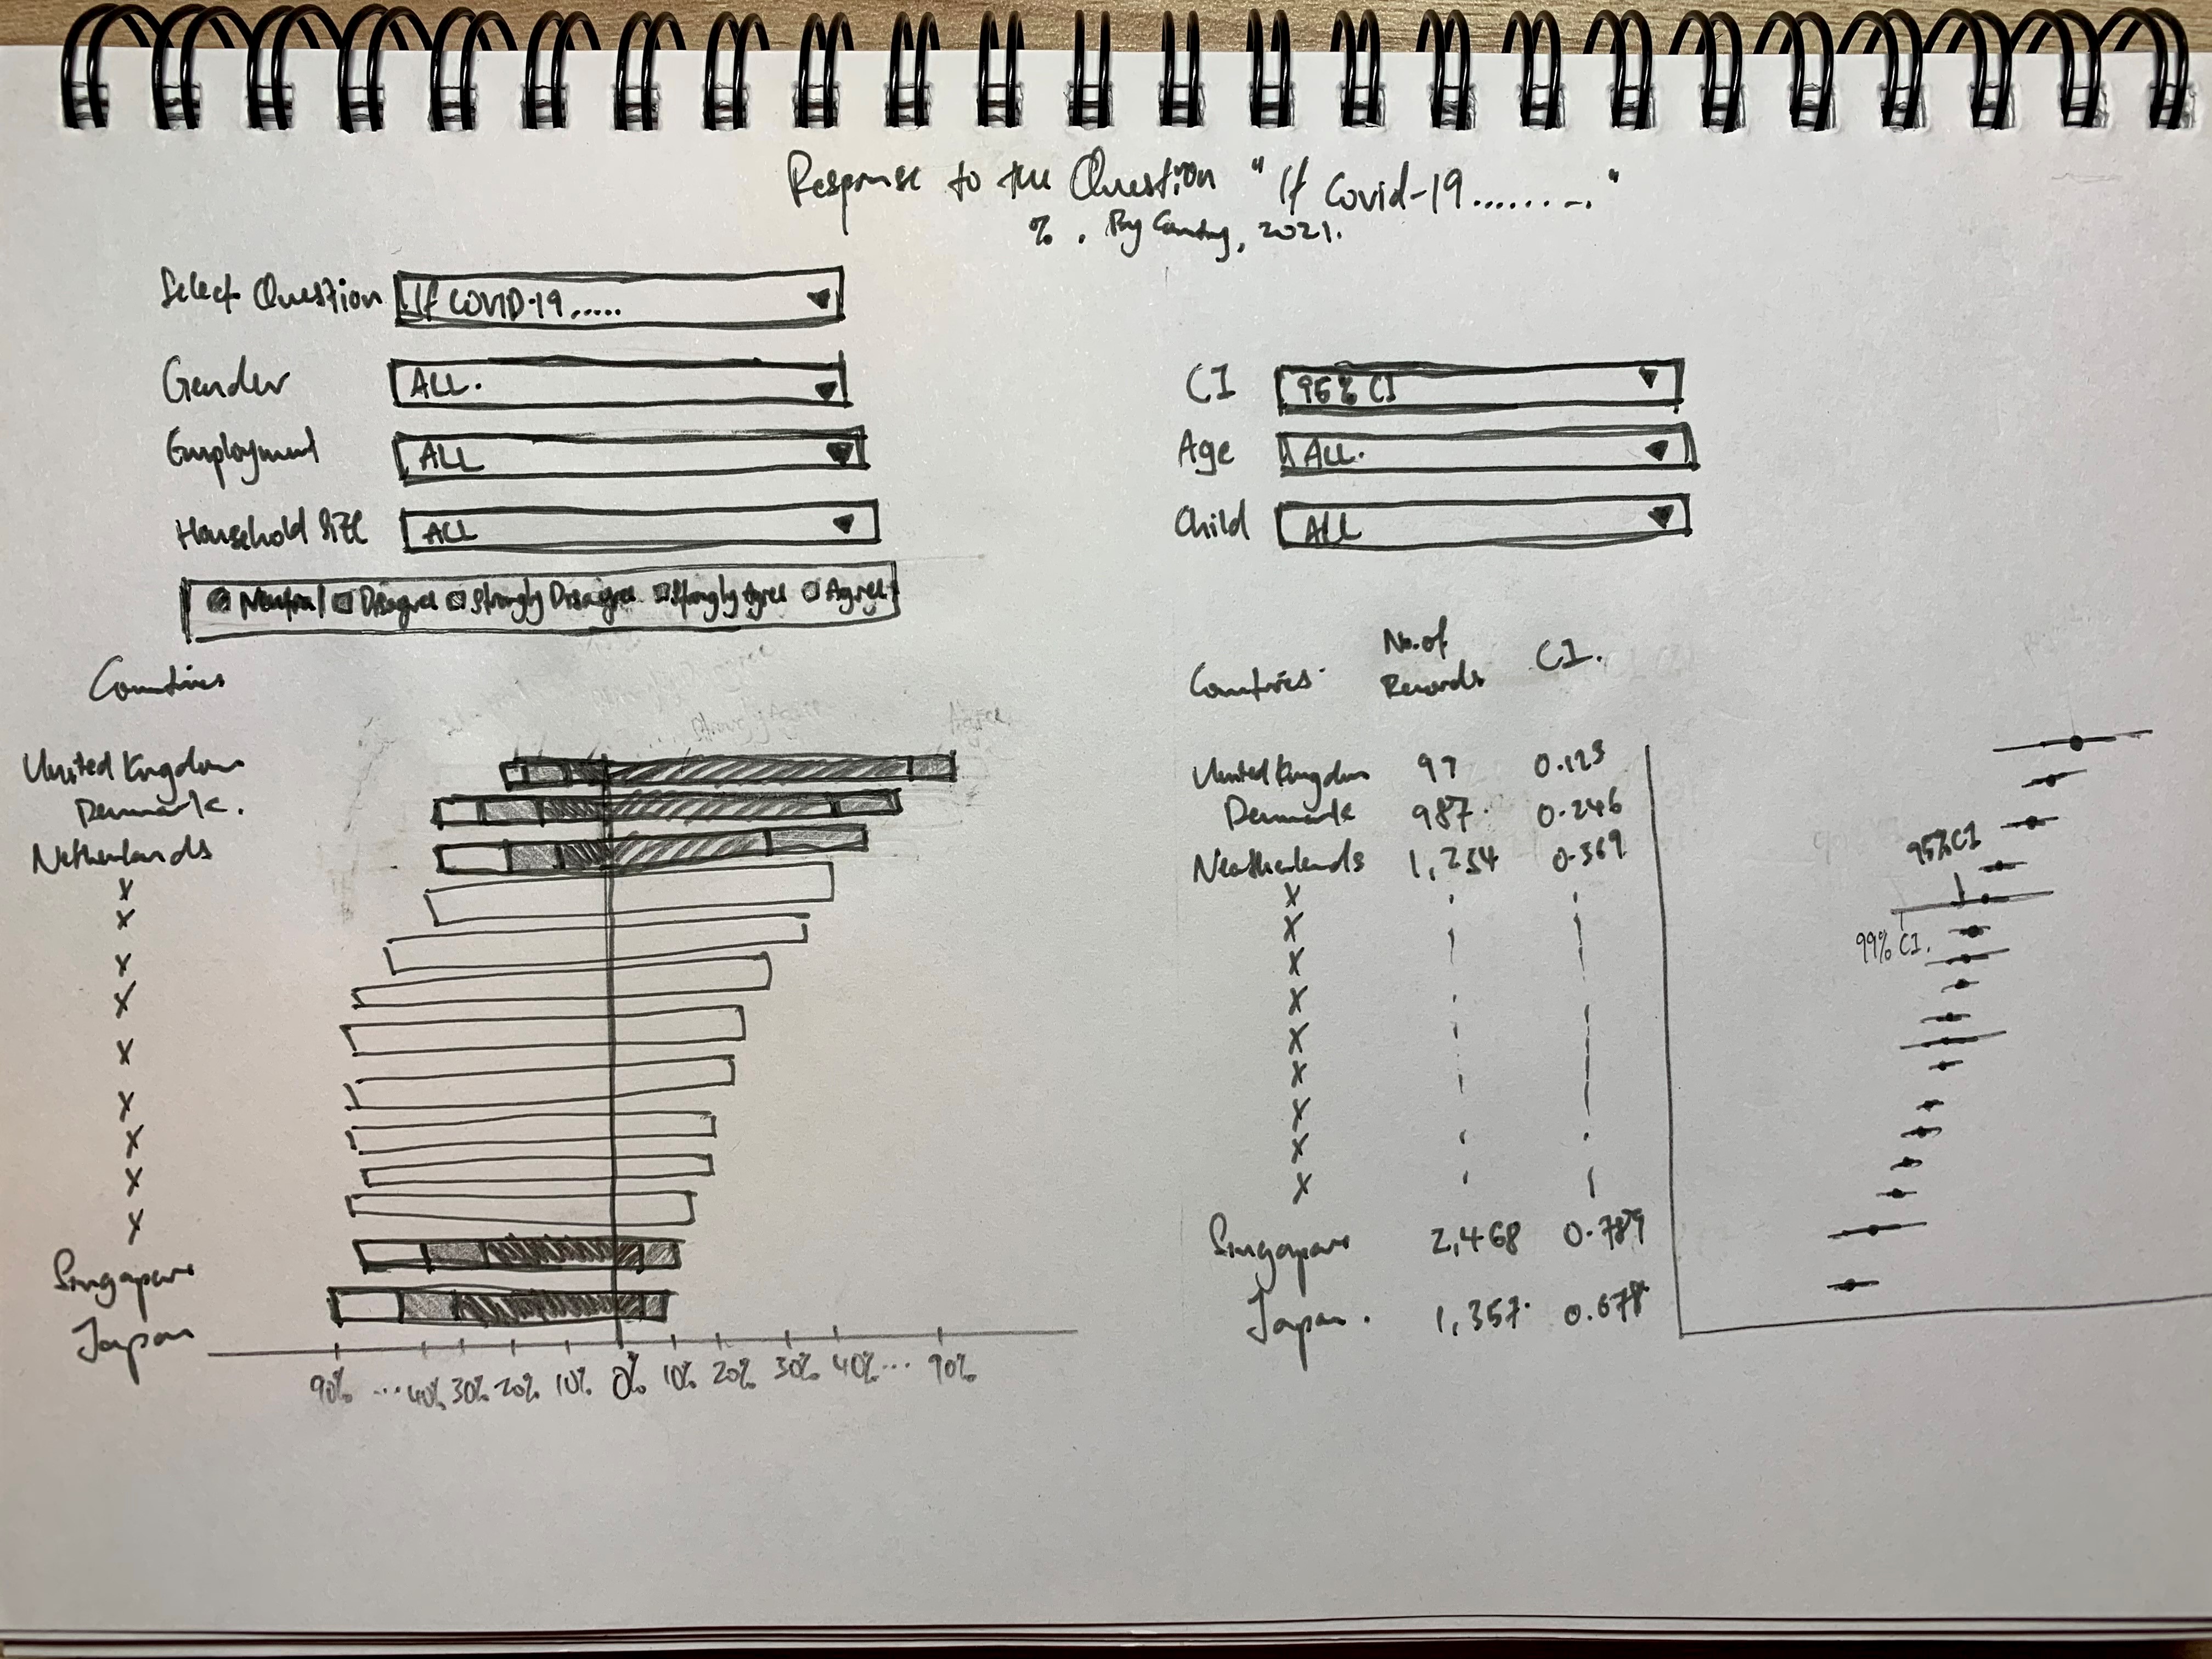 Response to the Question "If Covid-19........."
%, By Country, 2021.
Select Question If COVID-19.....
Gender ALL.
CI 95% CI
Employment ALL
Age ALL.
Household Size ALL
Child ALL
Neutral Disagree Strongly Disagree Strongly Agree Agree
Countries
United Kingdom
Denmark.
Netherlands
X
X
X
X
X
X
X
X
X
Singapore
Japan
90% ... 40% 30% 20% 10% 0% 10% 20% 30% 40% ... 90%
Countries No. of Records CI.
United Kingdom 97 0.123
Denmark 987 0.246
Neatherlands 1,234 0.369
X
X
X
X
X
X
X
X
X
Singapore 2,468 0.789
Japan. 1,357 0.678
95% CI
99% CI.